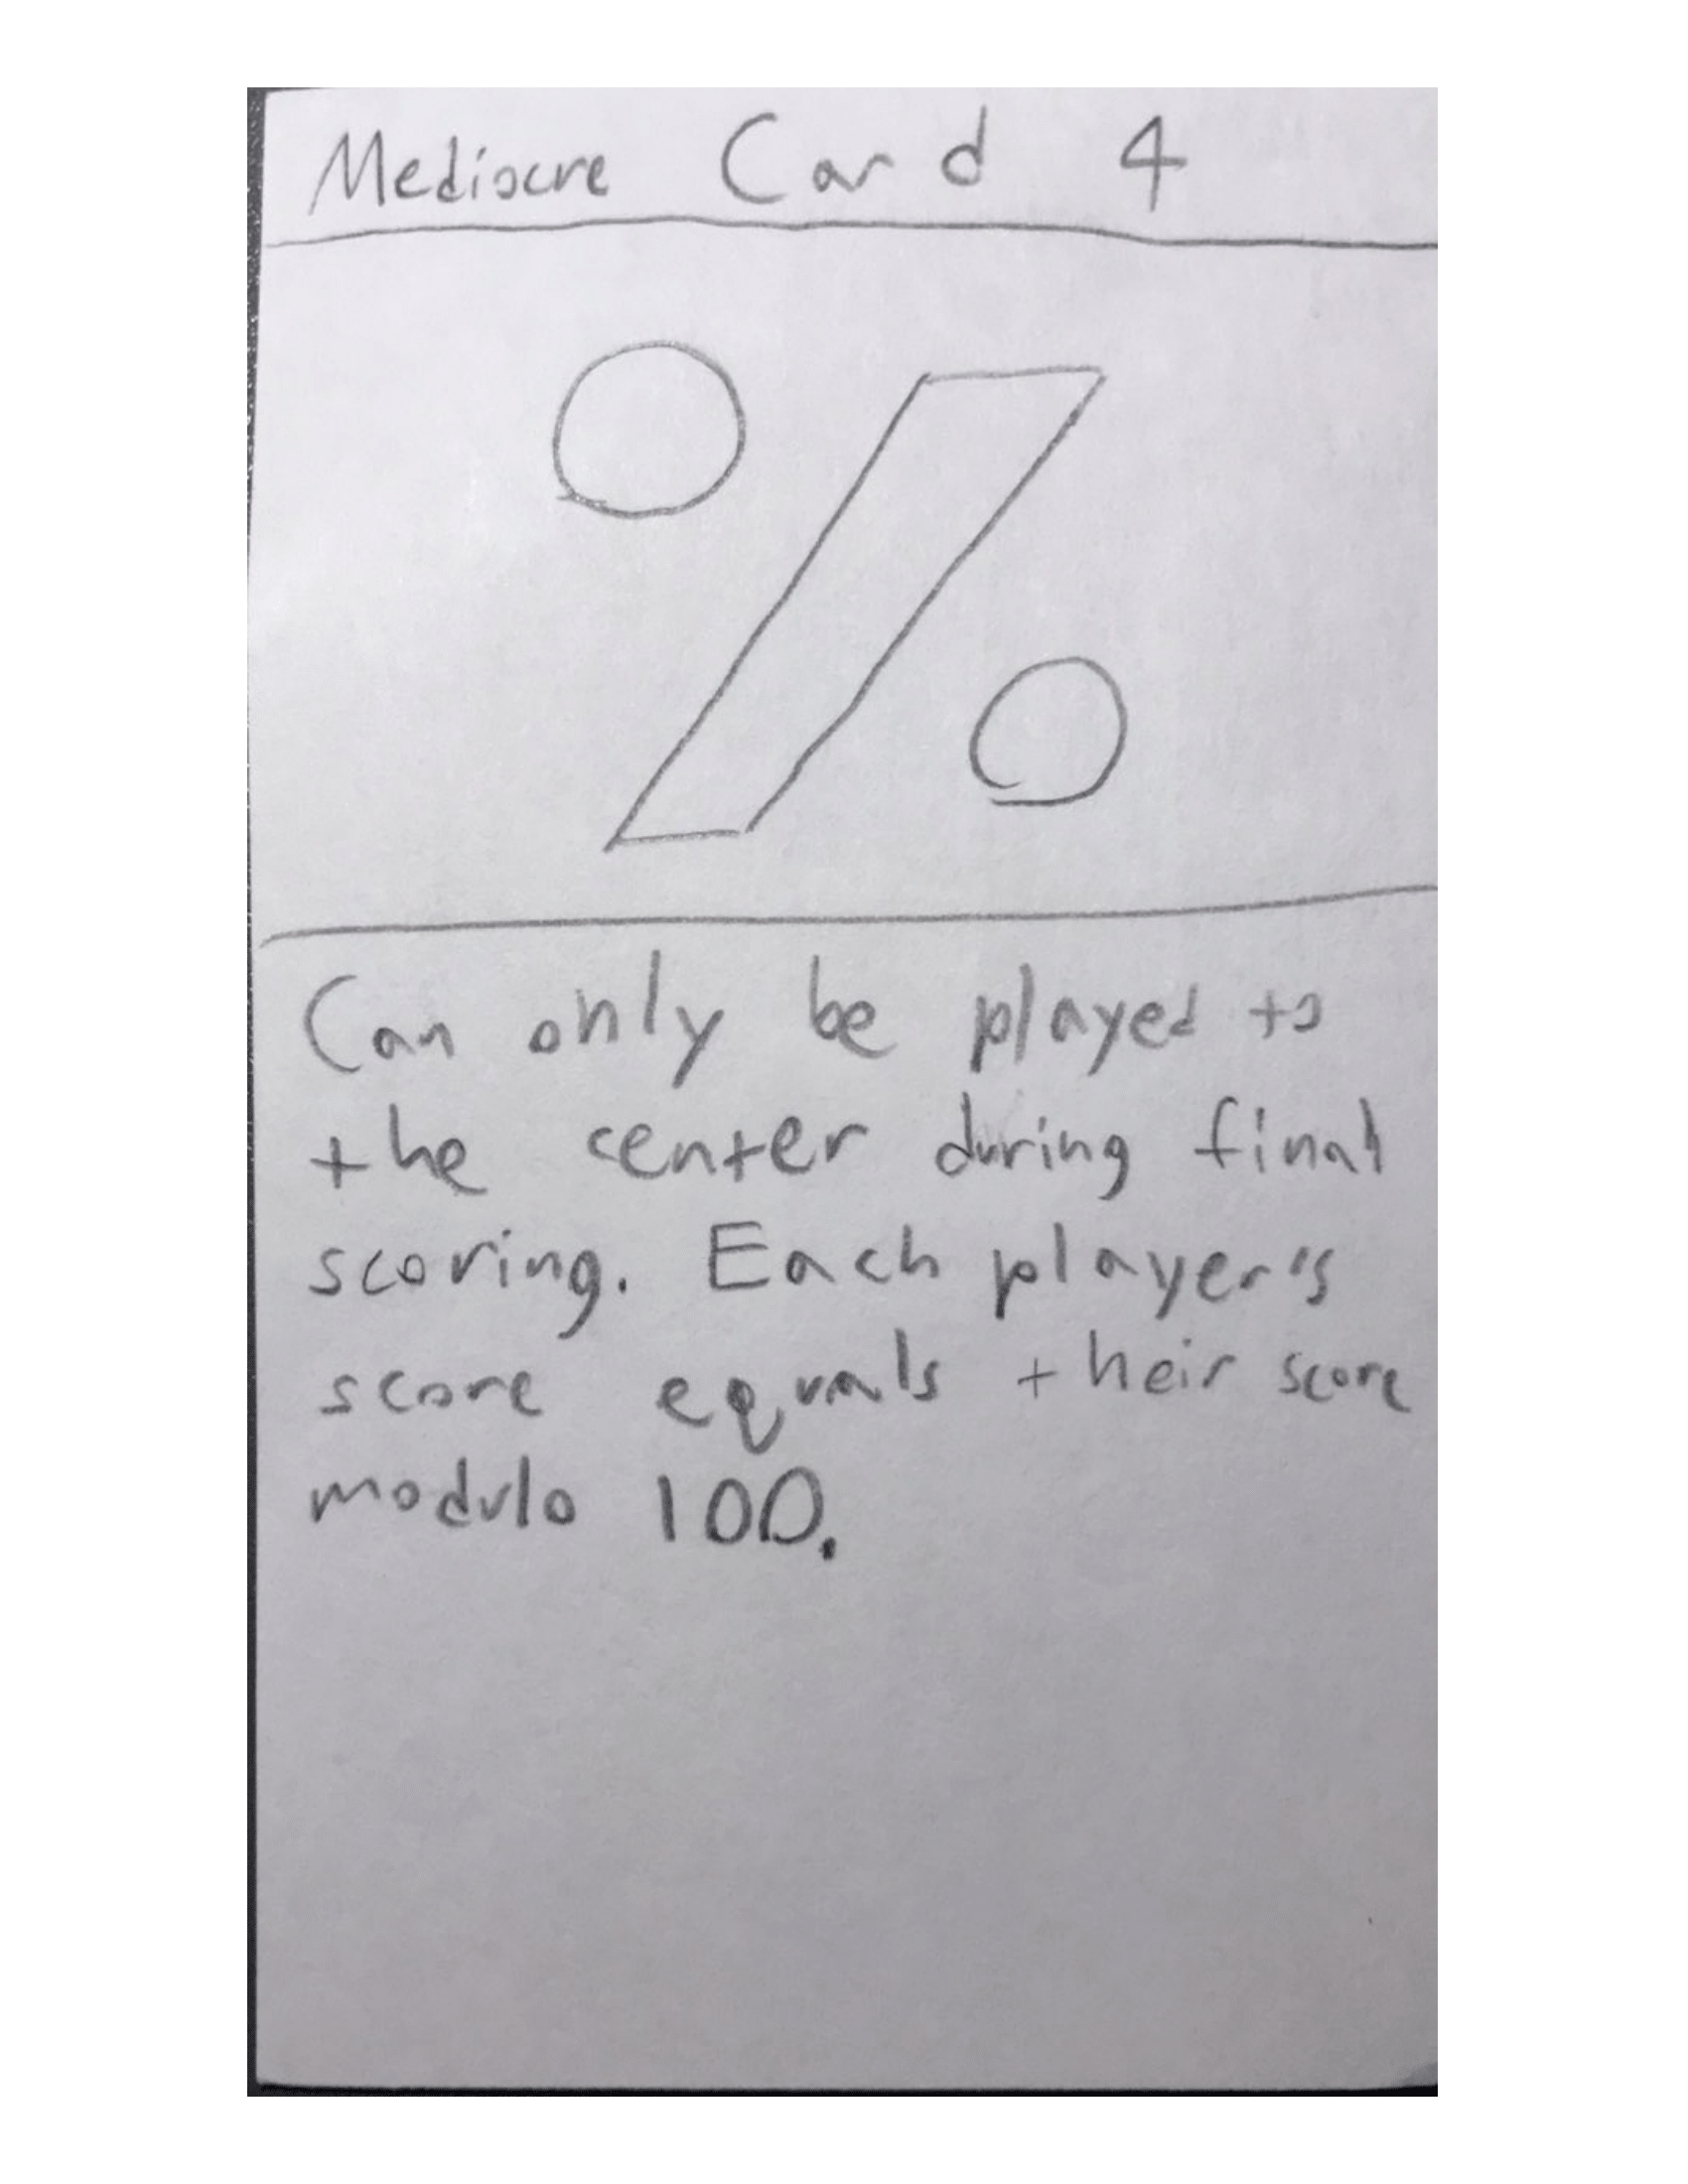 Mediocre Card 4
%
Can only be played to
the center during final
scoring. Each player's
score equals their score
modulo 100.